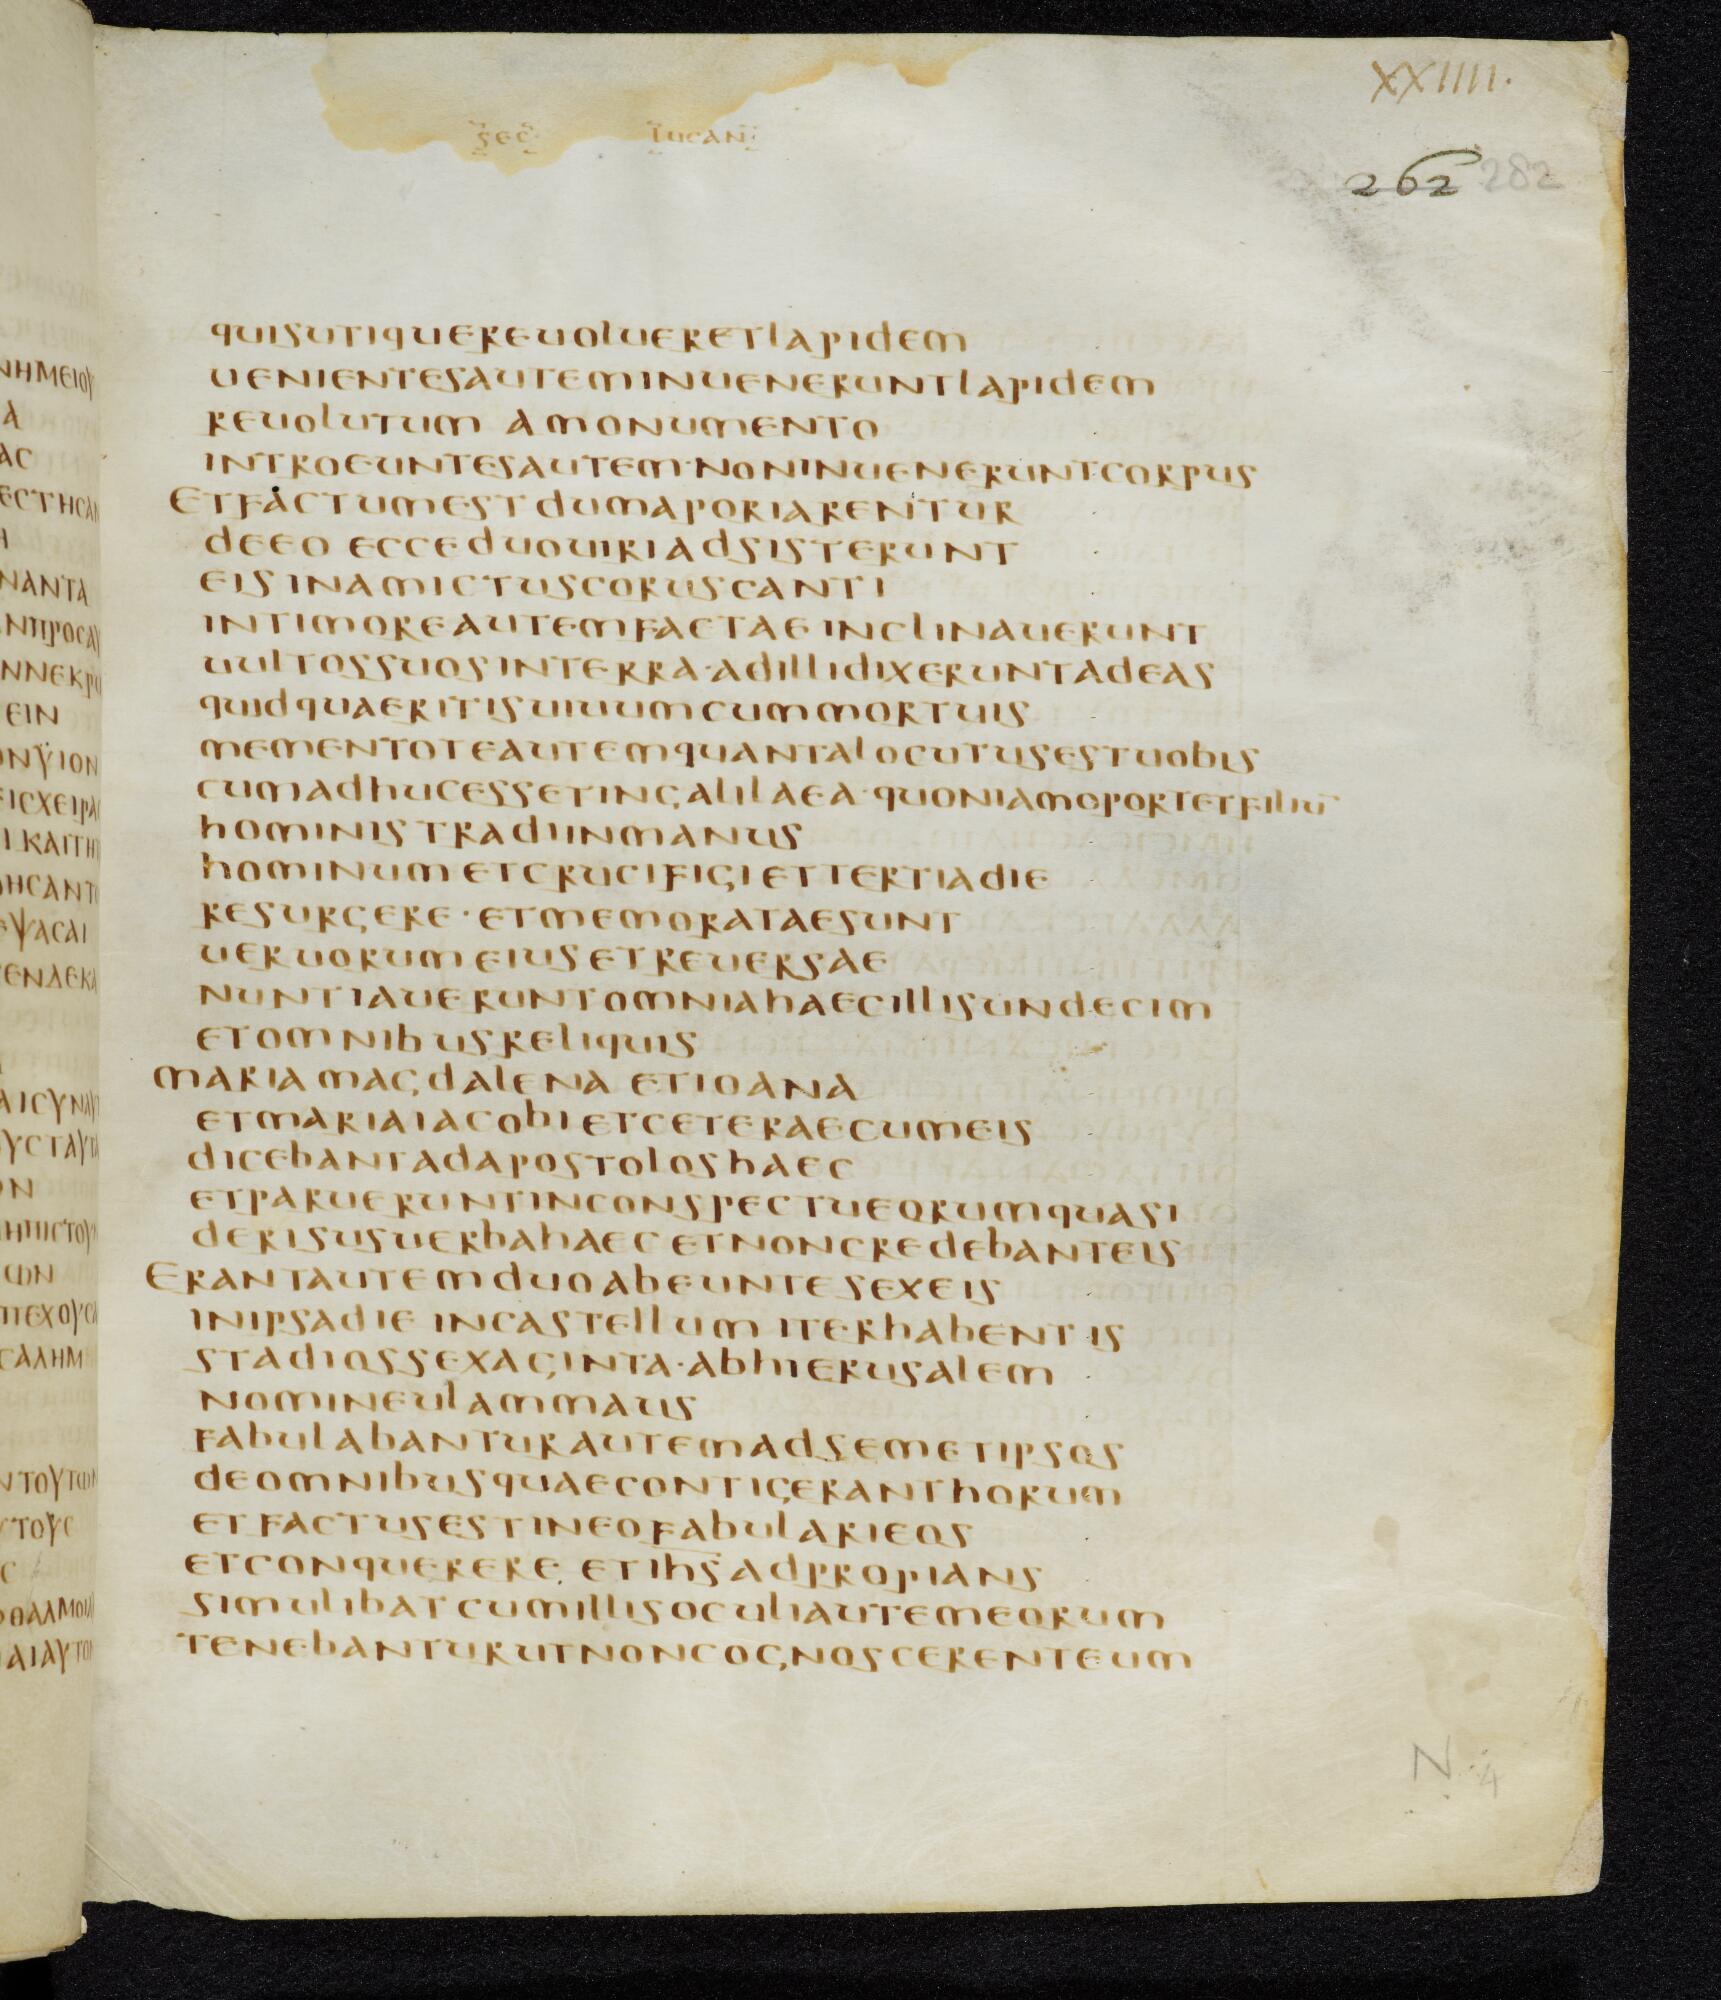 XXIIII.
sec lucan
262 282
quisutiquereuolueretlapidem
uenientesauteminueneruntlapidem
reuolutum amonumento
introeuntesautem·noninueneruntcorpus
Etfactumestdumaporiarentur
deeo ecceduouiriadsisterunt
eis inamictuscoruscanti
intimoreautemfactae inclinauerunt
uultossuosinterra·adillidixeruntadeas
quidquaeritisuiuumcummortuis
mementoteautemquantalocutusestuobis
cumadhucessetingalilaea·quoniamoportetfiliū
hominis tradiinmanus
hominumetcrucifigi ettertiadie
resurgere·etmemorataesunt
ueruorumeiusetreuersae
nuntiaueruntomniahaecillisundecim
etomnibusreliquis
maria magdalena etioana
etmariaiacobi etceteraecumeis
dicebantadapostoloshaec
etparueruntinconspectueorumquasi
derisusuerbahaec etnoncredebanteis
Erantautemduoabeuntesexeis
inipsadie incastellum iterhabentis
stadiossexaginta·abhierusalem
nomineulammaus
fabulabanturautemadsemetipsos
deomnibusquaecontigeranthorum
etfactusestineofabularieos
etconquerere etihsadpropians
simulibatcumillisoculiautemeorum
tenebanturutnoncognoscerenteum
N. 4
νημειου
α
ας
ναντα
ννεκρο
ειν
ονϋιον
ειςχειρα
ενδεκα
ων
σαλημ
ντουτων
υτους
ς